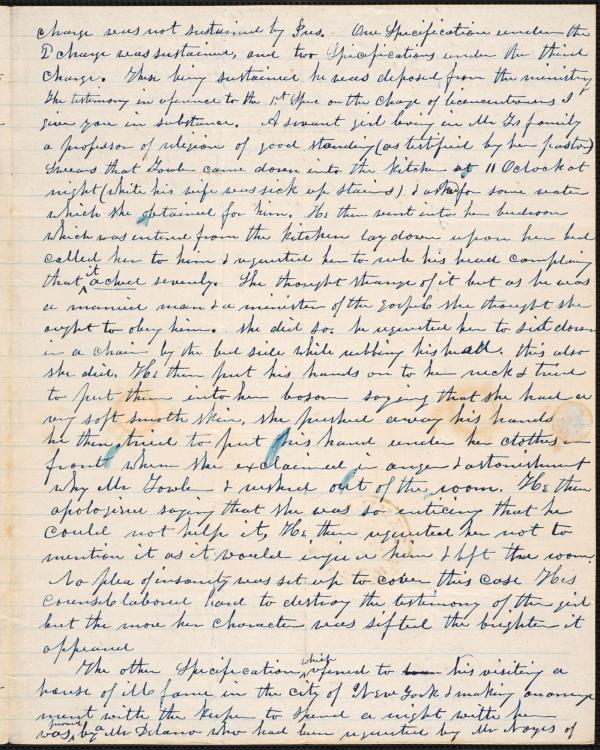 charge was not sustained by Pres. One Specification under the
2d charge was sustained, and two Specifications under the third
Charge. These being sustained he was deposed from the ministry
The testimony in reference to the 1st Spec on the charge of licentiousness I
give you in substance. A servant girl living in Mr Fs family
a professor of religion of good standing (as testified by her pastor)
swears that Fowler came down into the kitchen at 11 Oclock at
night (while his wife was sick up stairs) & asked for some water
which she obtained for him. He then went into her bedroom
which was entered from the kitchen lay down upon her bed
called her to him & requested her to rub his head complaining
that it ached severely. She thought strange of it but as he was
a married man & a minister of the gospel she thought she
ought to obey him. She did so. he requested her to sit down
in a chair by the bed side while rubbing his head. this also
she did. He then put his hands on to her neck & tried
to put them into her bosom saying that she had a
very soft smooth skin, she pushed away his hands
he then tried to put his hand under her clothes in
front when she exclaimed in anger & astonishment
why Mr Fowler & rushed out of the room. He then
apologized saying that she was so enticing that he
could not help it, He then requested her not to
mention it as it would injure him & left the room.
No plea of insanity was set up to cover this case His
counsel labored hard to destroy the testimony of the girl
but the more her character was sifted the brighter it
appeared
The other Specification which refered to his visiting a
house of ill fame in the city of New York & making an arrange
ment with the keeper to spend a night with her
was proved by a Mr Delano who had been requested by Mr Noyes of